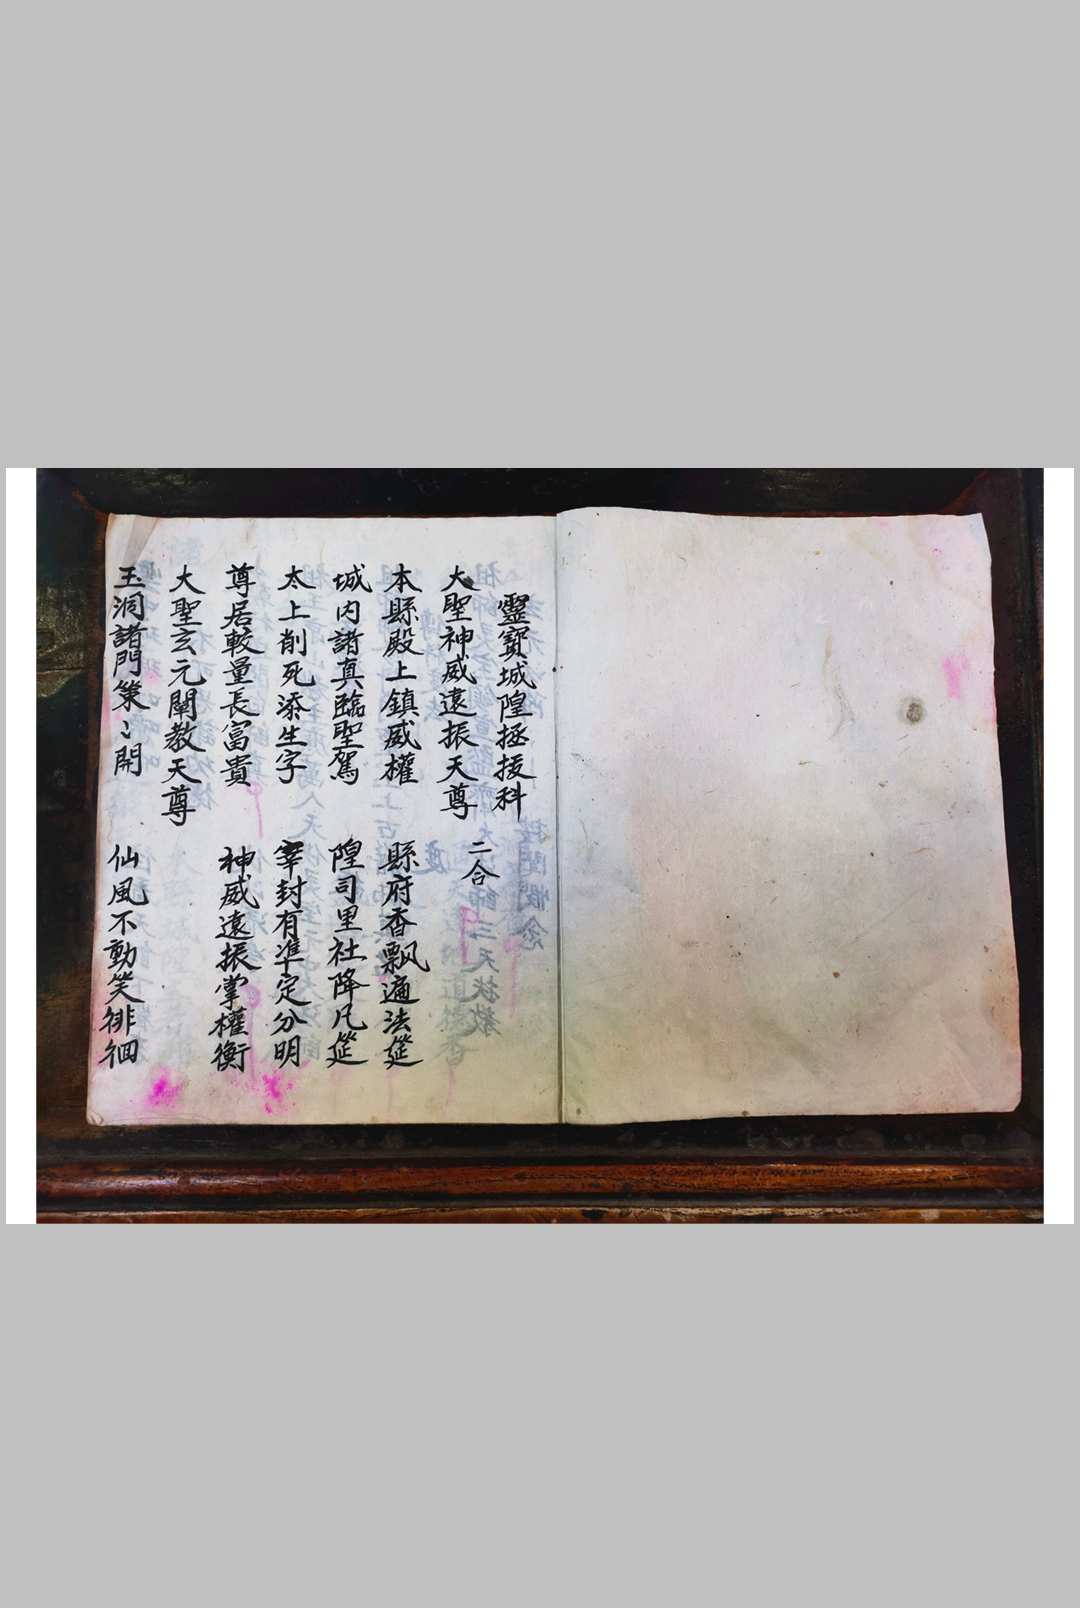 靈寶城隍拯拔科
大聖神威遠振天尊 二合
本縣殿上鎮威權 縣府香飄遍法筵
城内諸真臨聖駕 隍司里社降凡筵
太上削死添生字 宰封有準定分明
尊居較量長富貴 神威遠振掌權衡
大聖玄元闡教天尊
玉洞諸門策〻開 仙風不動笑徘徊